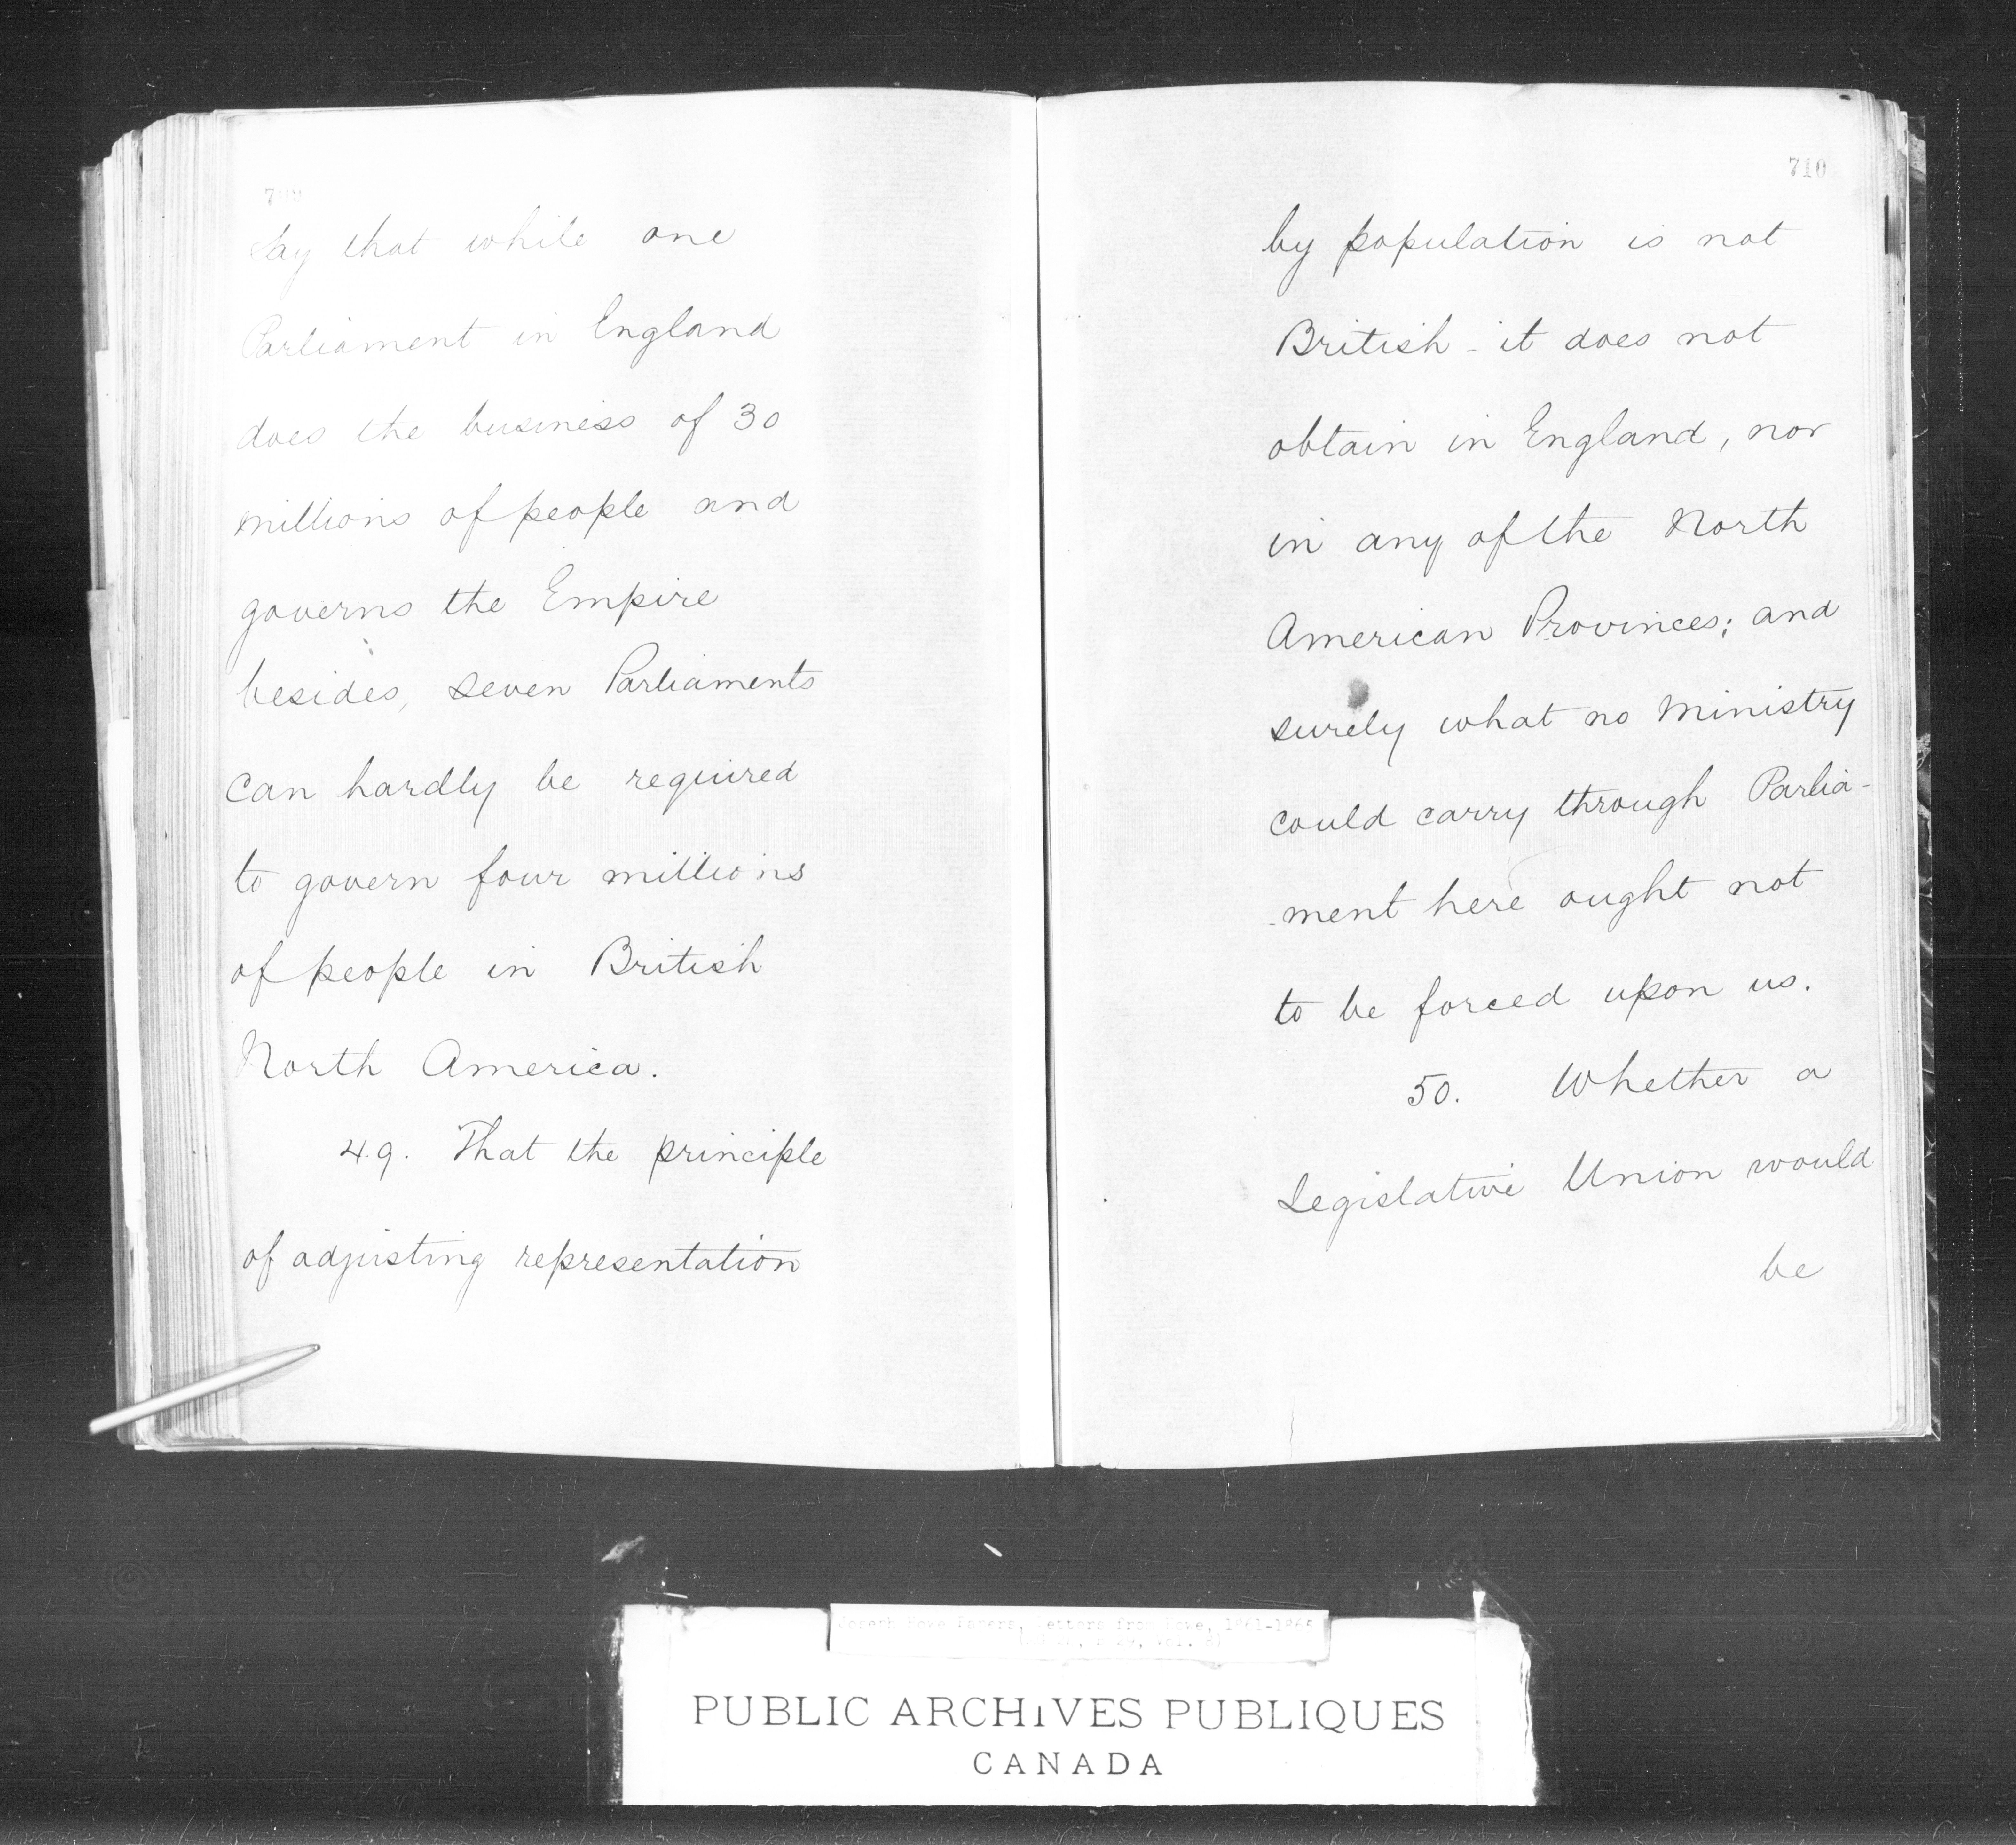 say that while one
Parliament in England
does the business of 30
millions of people and
governs the Empire
besides, seven Parliaments
can hardly be required
to govern four millions
of people in British
North America.
49. That the principle
of adjusting representation
710
by population is not
British - it does not
obtain in England, nor
in any of the North
American Provinces; and
surely what no Ministry
could carry through Parlia-
-ment here ought not
to be forced upon us.
50. Whether a
Legislative Union would
be
Joseph Howe Papers, Letters from Howe, 1861-1865
PUBLIC ARCHIVES PUBLIQUES
CANADA